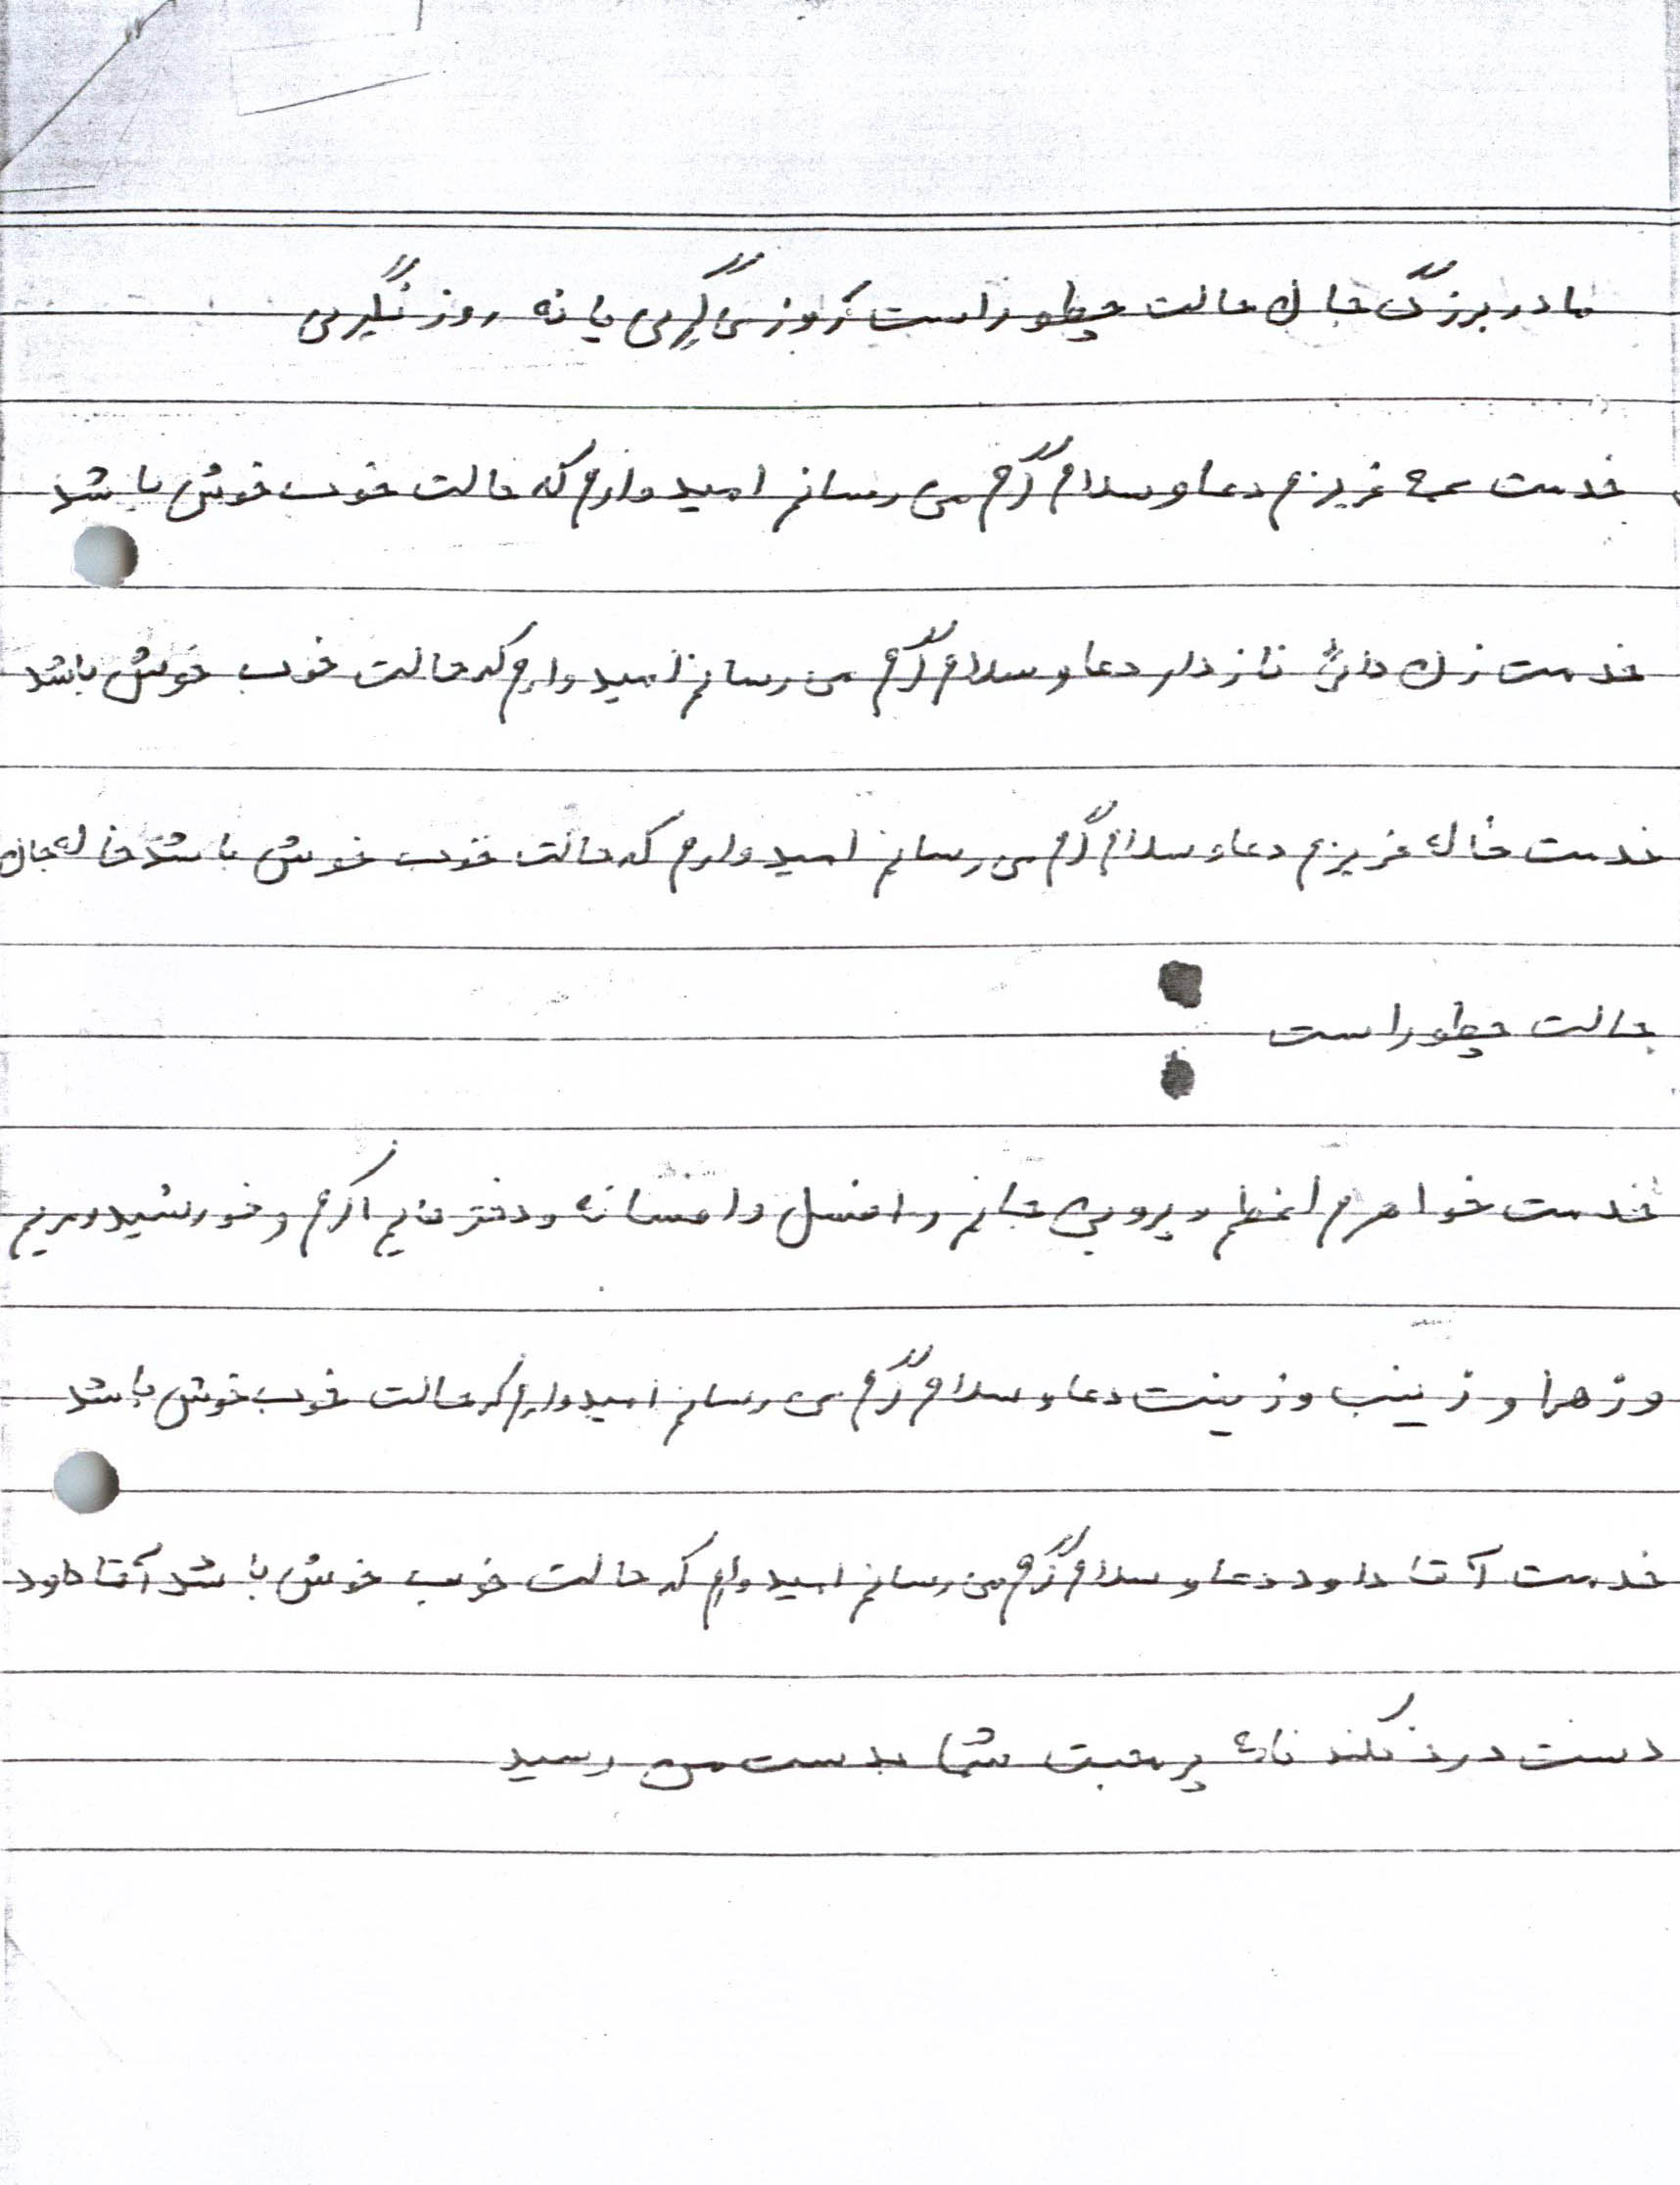 مادر بزرگ جان حالت چطور است روز می گیری یا نه روز نگیری
خدمت عمه عزیزم دعا و سلام گرم می رسانم امیدوارم که حالت خوب خوش باشد
خدمت زن دائی ناز دار دعا و سلام گرم می رسانم امیدوارم که حالت خوب خوش باشد
خدمت خاله عزیزم دعا و سلام گرم می رسانم امیدوارم که حالت خوب خوش باشد خاله جان
حالت چطور است
خدمت خواهرم اعظم و پروین جانم و افسل و افسانه و دختر اکرم و خورشید و مریم
و زهرا و زینب و زینت دعا و سلام گرم می رسانم امیدوارم که حالت خوب خوش باشد
خدمت آقا داود دعا و سلام گرم می رسانم امیدوارم که حالت خوب خوش باشد آقا داود
دست درد نکند نامه پر محبت شما بدست من رسید